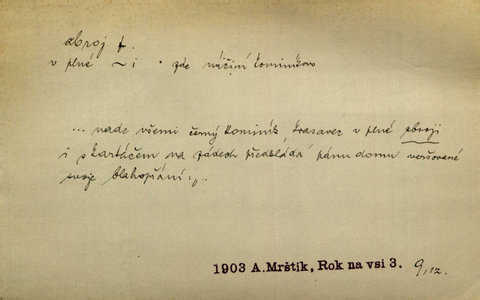 zbroj f.
v plné ~i · zde náčiní kominíkovo
... nade všemi černý kominík, krasavec v plné zbroji
i s kartáčem na zádech předkládá pánu domu veršované
svoje blahopřání: „..
1903 A. Mrštík, Rok na vsi 3. 9, 12.